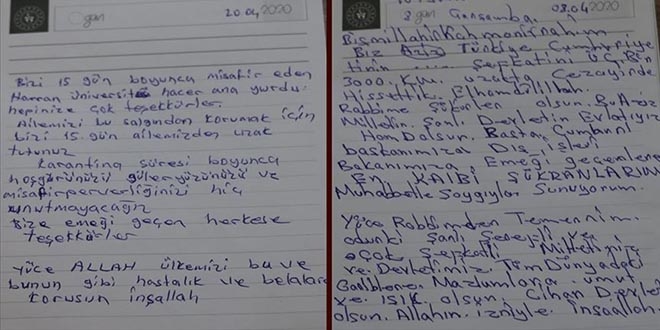 gün
20.04.2020
Bizi 15 gün boyunca misafir eden
Harran Üniversitesi hacer ana yurdu
herinize çok teşekkürler.
Ailemizi bu salgından korumak için
bizi 15 gün ailemizden uzak
tutunuz
Karantina süresi boyunca
hoşgörünüzü güleryüzünüzü ve
misafirperverliğinizi hiç
unutmayacağız
Bize emeği geçen herkese
teşekkürler
yüce ALLAH ülkemizi bu ve
bunun gibi hastalık ve belalardan
korusun inşallah
8 gün Çarşamba. 08.04.2020
Bismillahirrahmanirrahim
Biz Aziz Türkiye Cumhuriye
tinin Şefkatini ÜÇ Bin
3000. Km. uzakta Cezayinde
Hissettik. Elhamdülillah.
Rabbime Şükürler olsun. Bu Aziz
Milletin. Şanlı Devletin Evlatıyız
Ham Dolsun. Başta Cumhurul
başkanımıza Dış işleri
Bakanımıza. Emeği geçenlere
En KALBİ ŞÜKRANLARIMI
Muhabbetle Saygıylar Sunuyorum.
Yüce Rabbimden Temennim.
Şanlı Şerefli ve
Şefkatli Milletimiz
ve Devletimiz Tüm Dünyadaki
Mazlumlara umut
ve IŞIK olsun. Cihan Devleti
olsun. Allahın izniyle inşaallah.